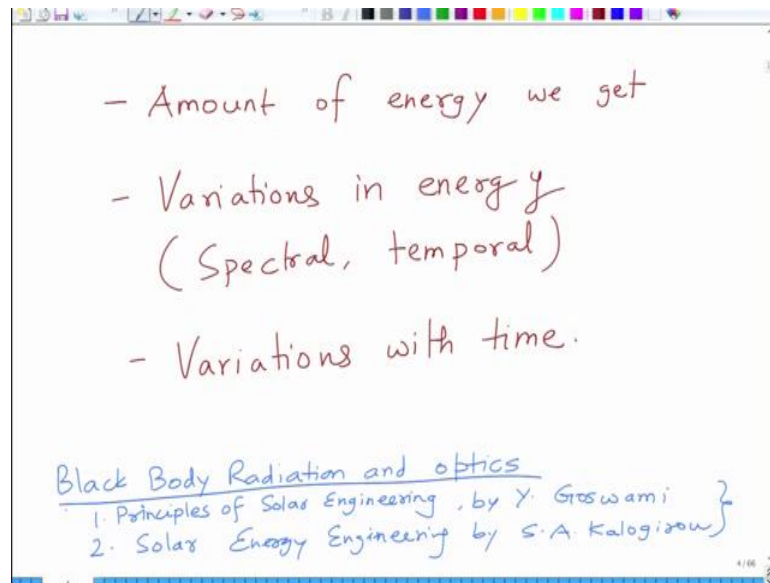 - Amount of energy we get
- Variations in energy
(Spectral, temporal)
- Variations with time.
Black Body Radiation and optics
1. Principles of Solar Engineering, by Y. Goswami
2. Solar Energy Engineering by S.A. Kalogirou
4/66